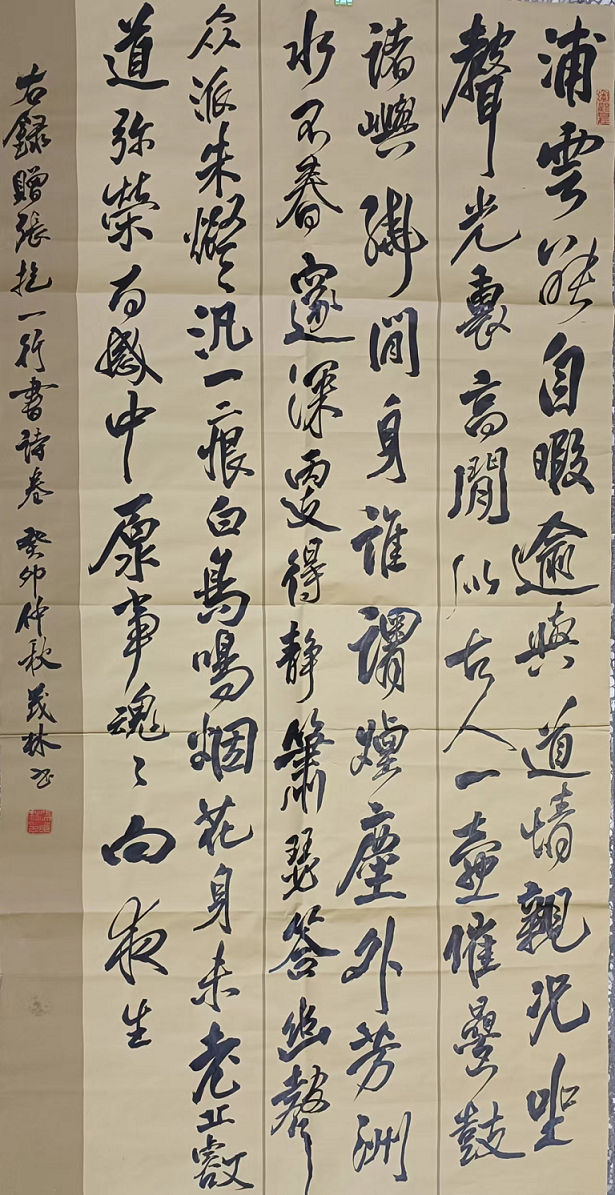 浦雲淡自暇逾與道情親況坐
聲光裏高閒似古人一壺催疊鼓
諸嶼繞閒身誰謂煙塵外芳洲
水不春邃深更得靜簫瑟答幽聲
众派朱凝〻汎一痕白鳥鳴烟花身未老丘壑
道弥榮而感中原事魂〻向夜生
右録贈張抱一行書詩卷 癸卯仲秋茂林书